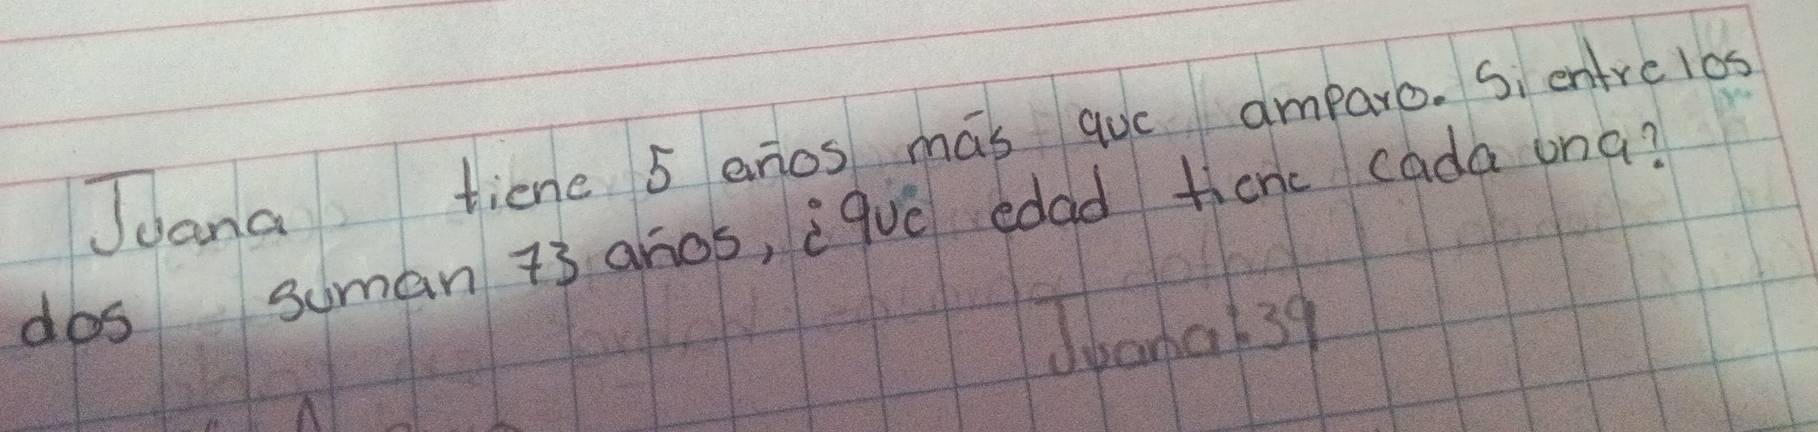 Juana tiene 5 años más que amparo. Si entre los
dos suman 73 años, ¿que edad tiene cada una?
Juana: 39